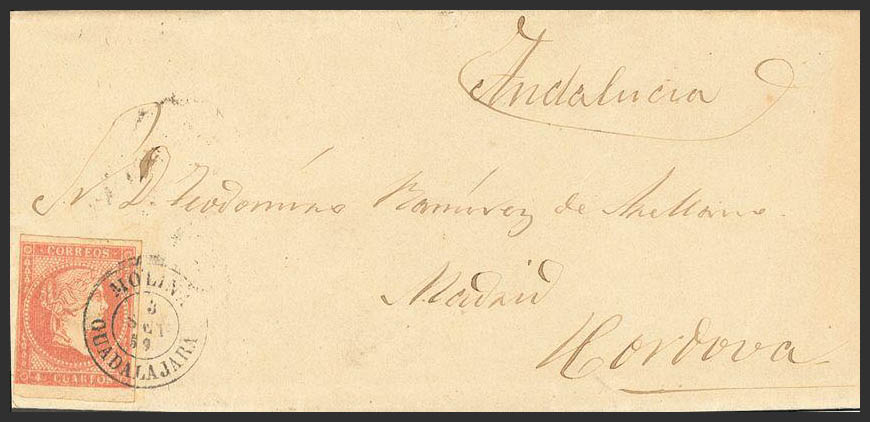 Andalucia
Sr. D. Teodomiro Ramírez de Arellano.
Madrid
Cordova
CORREOS
4 CUARTOS
MOLINA
3
SET
59
GUADALAJARA